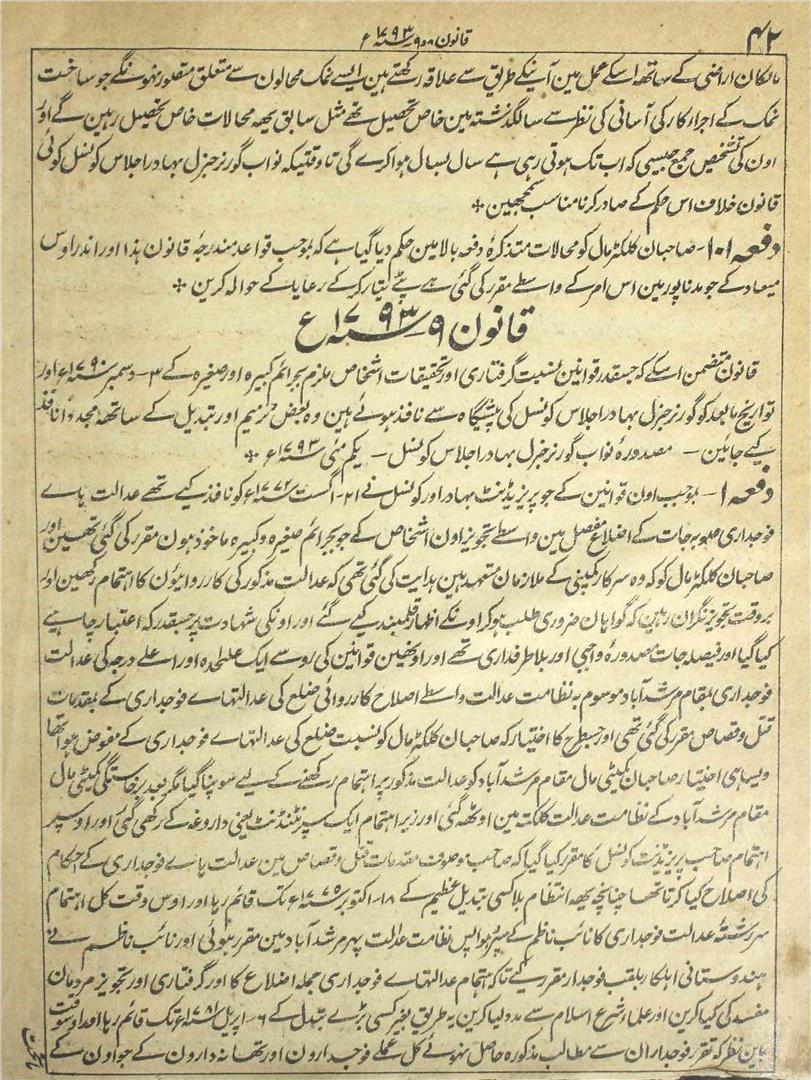 ۴۲
قانون ۸ و ۹ سنہ ۱۷۹۳ ع
مالکان اراضی کے ساتھ اسکے محل مین آنیکے طریق سے علاقہ رکھتے ہین ایسے نمک محالون سے متعلق متصور نہونگے جو ساخت
نمک کے اجرار کار کی آسانی کی نظر سے سالگذشتہ مین خاص تحصیل تھے مثل سابق یھہ محالات خاص تحصیل رہین گے اور
اون کی تشخیص جمع جیسی کہ اب تک ہوتی رہی ہے سال بسال ہوا کرے گی تا وقتیکہ نواب گورنر جنرل بہادر اجلاس کونسل کوئی
قانون خلاف اس حکم کے صادر کرنا مناسب سمجھین ⁜
دفعہ ۱۰۱ - صاحبان کلکٹر مال کو محالات متذکرہٴ دفعہ بالا مین حکم دیا گیا ہے کہ بموجب قواعد مندرجۂ قانون ہذا اور اندر اوس
میعاد کے جو مدناپور مین اس امر کے واسطے مقرر کی گئی ہے پٹے تیار کر کے رعایا کے حوالہ کرین ⁜
قانون ۹ سنہ ۱۷۹۳ ع
قانون متضمن اسکے کہ جسقدر قوانین بنسبت گرفتاری اور تحقیقات اشخاص ملزم بجرائم کبیرہ اور صغیرہ کے ۳ - دسمبر سنہ ۱۷۹۰ ع اور
تواریخ مابعد کو گورنر جنرل بہادر اجلاس کونسل کی پیشگاہ سے نافذ ہوئے ہین وہ بعض ترمیم اور تبدیل کے ساتھہ مجدداً نافذ
کیے جائین - مصدورہٴ نواب گورنر جنرل بہادر اجلاس کونسل - یکم مئی سنہ ۱۷۹۳ ع ⁜
دفعہ ۱ - بموجب اون قوانین کے جو پریزیڈنٹ بہادر اور کونسل نے ۲۱ - اگست سنہ ۱۷۷۲ ع کو نافذ کیے تھے عدالت ہاے
فوجداری صوبہ جات کے اضلاع مفصل مین واسطے تجویز اون اشخاص کے جو بجرائم صغیرہ و کبیرہ ماخوذ ہون مقرر کی گئی تھین اور
صاحبان کلکٹر مال کو کہ وہ سرکار کمپنی کے ملازمان متعہد ہین ہدایت کی گئی تھی کہ عدالت مذکور کی کارروائیون کا اہتمام رکھین اور
بروقت تجویز نگران رہین کہ گواہان ضروری طلب ہو کر اونکے اظہار قلمبند کیے گئے اور اونکی شہادت پر جسقدر کہ اعتبار چاہیے
کیا گیا اور فیصلہ جات مصدورہ واجبی اور بلا طرفداری تھے اور اونہین قوانین کی روسے ایک علیحدہ اور اعلے درجہ کی عدالت
فوجداری بمقام مرشدآباد موسوم بہ نظامت عدالت واسطے اصلاح کارروائی ضلع کی عدالتہاے فوجداری کے بمقدمات
قتل و قصاص مقرر کی گئی تھی اور جسطرح کا اختیار کہ صاحبان کلکٹر مال کو بنسبت ضلع کی عدالتہاے فوجداری کے مفوض ہوا تھا
ویسا ہی اختیار صاحبان کمیٹی مال مقام مرشدآباد کو عدالت مذکور پر اہتمام رکھنے کے لیے سونپا گیا مگر بعد برخاستگی کمیٹی مال
مقام مرشدآباد کے نظامت عدالت کلکتہ مین اوٹھہ گئی اور زیر اہتمام ایک سپرنٹنڈنٹ یعنی داروغہ کے رکھی گئی اور اوسپر
اہتمام صاحب پریزیڈنٹ کونسل کا مقرر کیا گیا کہ صاحب موصوف مقدمات قتل و قصاص مین عدالت ہاے فوجداری کے احکام
کی اصلاح کیا کرتا تھا چنانچہ یھہ انتظام بلا کسی تبدیل عظیم کے ۱۸ - اکتوبر سنہ ۱۷۷۵ ع تک قائم رہا اور اوس وقت کل اہتمام
سررشتۂ عدالت فوجداری کا نائب ناظم کے سپرد ہوا پس نظامت عدالت پھر مرشدآباد مین مقرر ہوئی اور نائب ناظم نے
ہندوستانی اہلکار بلقب فوجدار مقرر کیے تاکہ اہتمام عدالتہاے فوجداری جملہ اضلاع کا اور گرفتاری اور تجویز مردمان
مفسد کی کیا کرین اور علماء شرع اسلام سے مدد لیا کرین یہ طریق بغیر کسی بڑے تبدل کے ۶ - اپریل سنہ ۱۷۸۱ ع تک قائم رہا اور اوسوقت
باین نظر کہ تقرر فوجداران سے مطالب مذکورہ حاصل نہوئے کل عملے فوجدارون اور تھانہ دارون کے جو اون کے